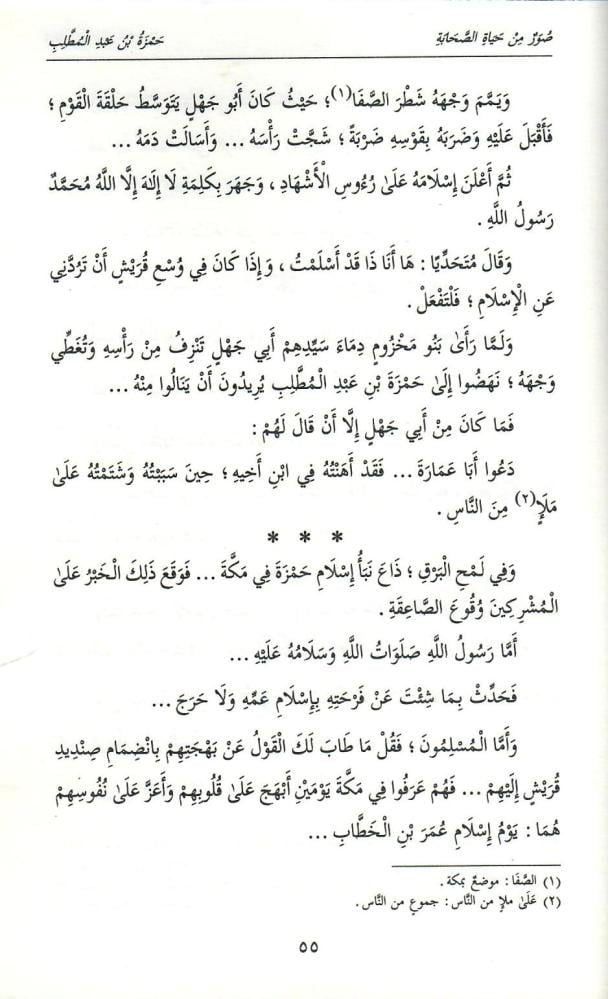 صُوَرٌ مِنْ حَيَاةِ الصَّحَابَةِ
حَمْزَةُ بْنُ عَبْدِ الْمُطَّلِبِ
وَيَمَّمَ وَجْهَهُ شَطْرَ الصَّفَا(١) ؛ حَيْثُ كَانَ أَبُو جَهْلٍ يَتَوَسَّطُ حَلْقَةَ الْقَوْمِ ؛
فَأَقْبَلَ عَلَيْهِ وَضَرَبَهُ بِقَوْسِهِ ضَرْبَةً ؛ شَجَّتْ رَأْسَهُ ... وَأَسَالَتْ دَمَهُ ...
ثُمَّ أَعْلَنَ إِسْلَامَهُ عَلَىٰ رُءُوسِ الْأَشْهَادِ ، وَجَهَرَ بِكَلِمَةِ لَا إِلَٰهَ إِلَّا اللَّهُ مُحَمَّدٌ
رَسُولُ اللَّهِ .
وَقَالَ مُتَحَدِّيًا : هَا أَنَا ذَا قَدْ أَسْلَمْتُ ، وَإِذَا كَانَ فِي وُسْعِ قُرَيْشٍ أَنْ تَرُدَّنِي
عَنِ الْإِسْلَامِ ؛ فَلْتَفْعَلْ .
وَلَمَّا رَأَىٰ بَنُو مَخْزُومٍ دِمَاءَ سَيِّدِهِمْ أَبِي جَهْلٍ تَنْزِفُ مِنْ رَأْسِهِ وَتُغَطِّي
وَجْهَهُ ؛ نَهَضُوا إِلَىٰ حَمْزَةَ بْنِ عَبْدِ الْمُطَّلِبِ يُرِيدُونَ أَنْ يَنَالُوا مِنْهُ ...
فَمَا كَانَ مِنْ أَبِي جَهْلٍ إِلَّا أَنْ قَالَ لَهُمْ :
دَعُوا أَبَا عَمَارَةَ ... فَقَدْ أَهَنْتُهُ فِي ابْنِ أَخِيهِ ؛ حِينَ سَبَبْتُهُ وَشَتَمْتُهُ عَلَىٰ
مَلَإٍ(٢) مِنَ النَّاسِ .
* * *
وَفِي لَمْحِ الْبَرْقِ ؛ ذَاعَ نَبَأُ إِسْلَامِ حَمْزَةَ فِي مَكَّةَ ... فَوَقَعَ ذَلِكَ الْخَبْرُ عَلَىٰ
الْمُشْرِكِينَ وُقُوعَ الصَّاعِقَةِ .
أَمَّا رَسُولُ اللَّهِ صَلَوَاتُ اللَّهِ وَسَلَامُهُ عَلَيْهِ ...
فَحَدِّثْ بِمَا شِئْتَ عَنْ فَرْحَتِهِ بِإِسْلَامِ عَمِّهِ وَلَا حَرَجَ ...
وَأَمَّا الْمُسْلِمُونَ ؛ فَقُلْ مَا طَابَ لَكَ الْقَوْلُ عَنْ بَهْجَتِهِمْ بِانْضِمَامِ صِنْدِيدِ
قُرَيْشٍ إِلَيْهِمْ ... فَهُمْ عَرَفُوا فِي مَكَّةَ يَوْمَيْنِ أَبْهَجَ عَلَىٰ قُلُوبِهِمْ وَأَعَزَّ عَلَىٰ نُفُوسِهِمْ
هُمَا : يَوْمُ إِسْلَامِ عُمَرَ بْنِ الْخَطَّابِ ...
(١) الصَّفَا : موضعٌ بمكة .
(٢) عَلَىٰ ملإ من النَّاس : جموعٍ من النَّاس .
٥٥